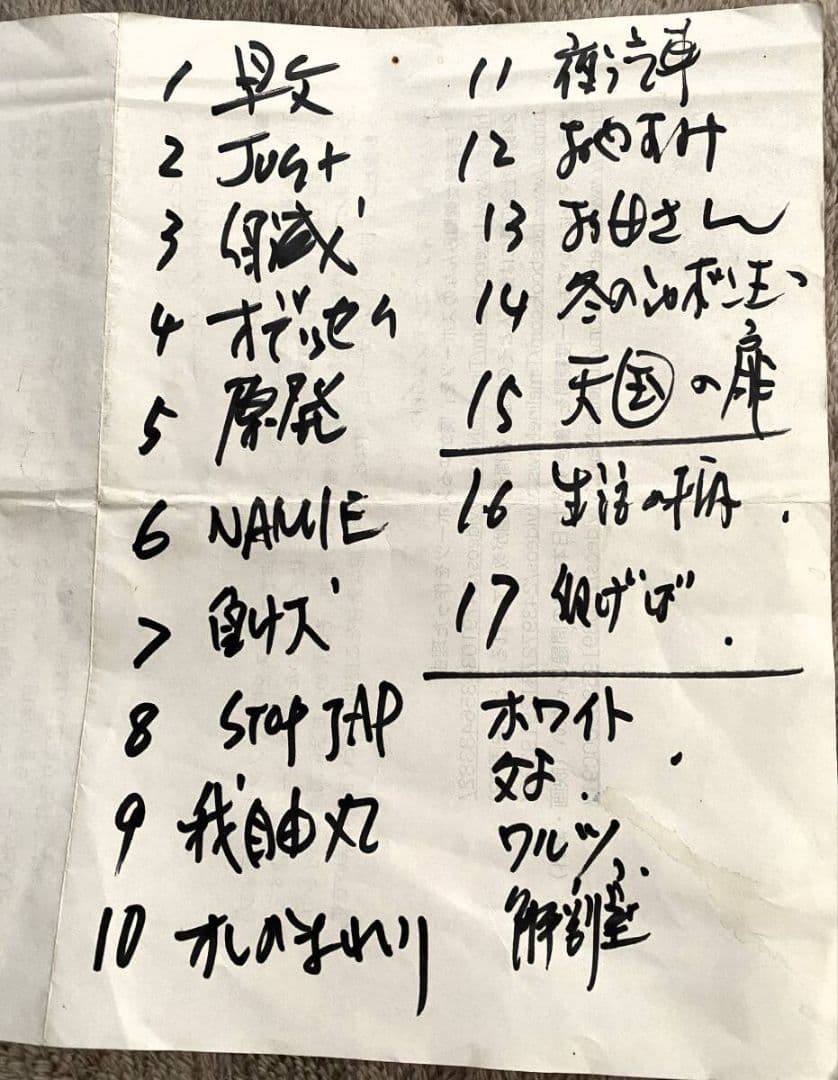 1
2 Just
3
4 オデッセイ
5 原発
6 NAMIE
7 負け犬
8 STOP JAP
9 我自由丸
10 オレのまわり
11 夜汽車
12 おやすみ
13 お母さん
14 冬のシャボン玉
15 天国の扉
16 生活の柄
17 仰げば
ホワイト
父よ
ワルツ
解剖室